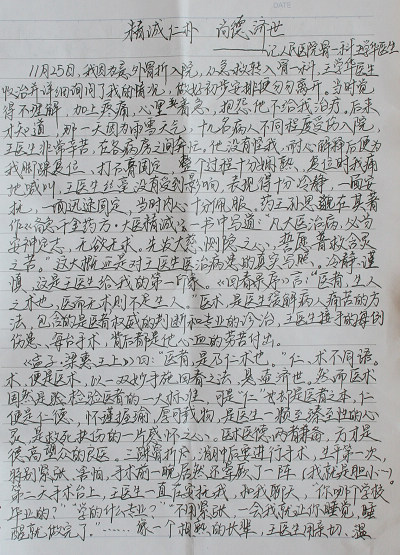 精诚仁术 尚德济世
——记人民医院骨一科王学华医生
11月25日,我因为意外骨折入院,从急救转入骨一科,王学华医生
收治并详细询问了我的情况,做好初步安排便匆匆离开。当时觉
得不理解,加上疼痛,心里着急,抱怨他不给我治疗。后来
才知道,那一天因为雨雪天气,十几名病人不同程度受伤入院,
王医生非常辛苦,在各病房之间奔忙。他没有怪我,耐心解释后便为
我脚踝复位、打石膏固定,整个过程十分娴熟,复位时我痛
地喊叫,王医生丝毫没有受到影响,表现得十分冷静,一面安
抚,一面迅速固定,当时内心十分佩服。药王孙思邈在其著
作《备急千金药方·大医精诚》一书中写道:“凡大医治病,必当
安神定志,无欲无求,先发大慈恻隐之心,誓愿普救含灵
之苦。”这大概正是对王医生医治病患的真实写照,冷静谨
慎,这是王医生给我的第一印象。《回春录序》言:“医者,生人
之术也,医而无术则不足生人。”医术,是医生缓解病人痛苦的方
法,包含的是医者权威的判断和专业的诊治,王医生接手的每例
伤患、每台手术,背后都是他心血的劳苦付出。
《孟子·梁惠王上》曰:“医者,是乃仁术也。”仁、术不同语。
术,便是医术,以一双妙手施回春之法,悬壶济世。然而医术
固然是检验医者的一大标准,可是“仁”也才是医者之本,仁
便是仁德,怀瑾握瑜,厚可载物,是医生一颗至臻至性的心
灵,是救死扶伤的一片感怀之心。医术医德两者兼备,方才是
德高望众的良医。三踝骨折,消肿后要进行手术,生平第一次,
特别紧张、害怕,手术前一晚居然还掉眼了一阵(我就是胆小)。
第二天手术台上,王医生一直在安抚我,和我聊天,“你哪个学校
毕业的?”“学的什么专业?”“不用紧张,一会我就让你睡觉,睡
醒就做完了”……像一个相熟的长辈,王医生用亲切、温